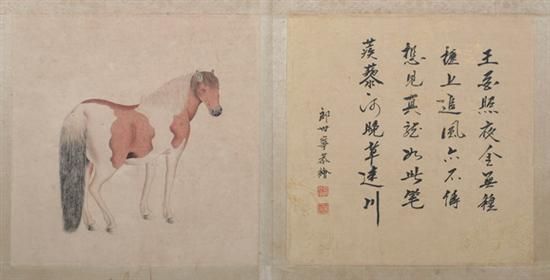 玉花照夜今無種
櫪上追風亦不傳
想見真龍如此筆
蒺藜沙晚草迷川
郎世寧恭繪